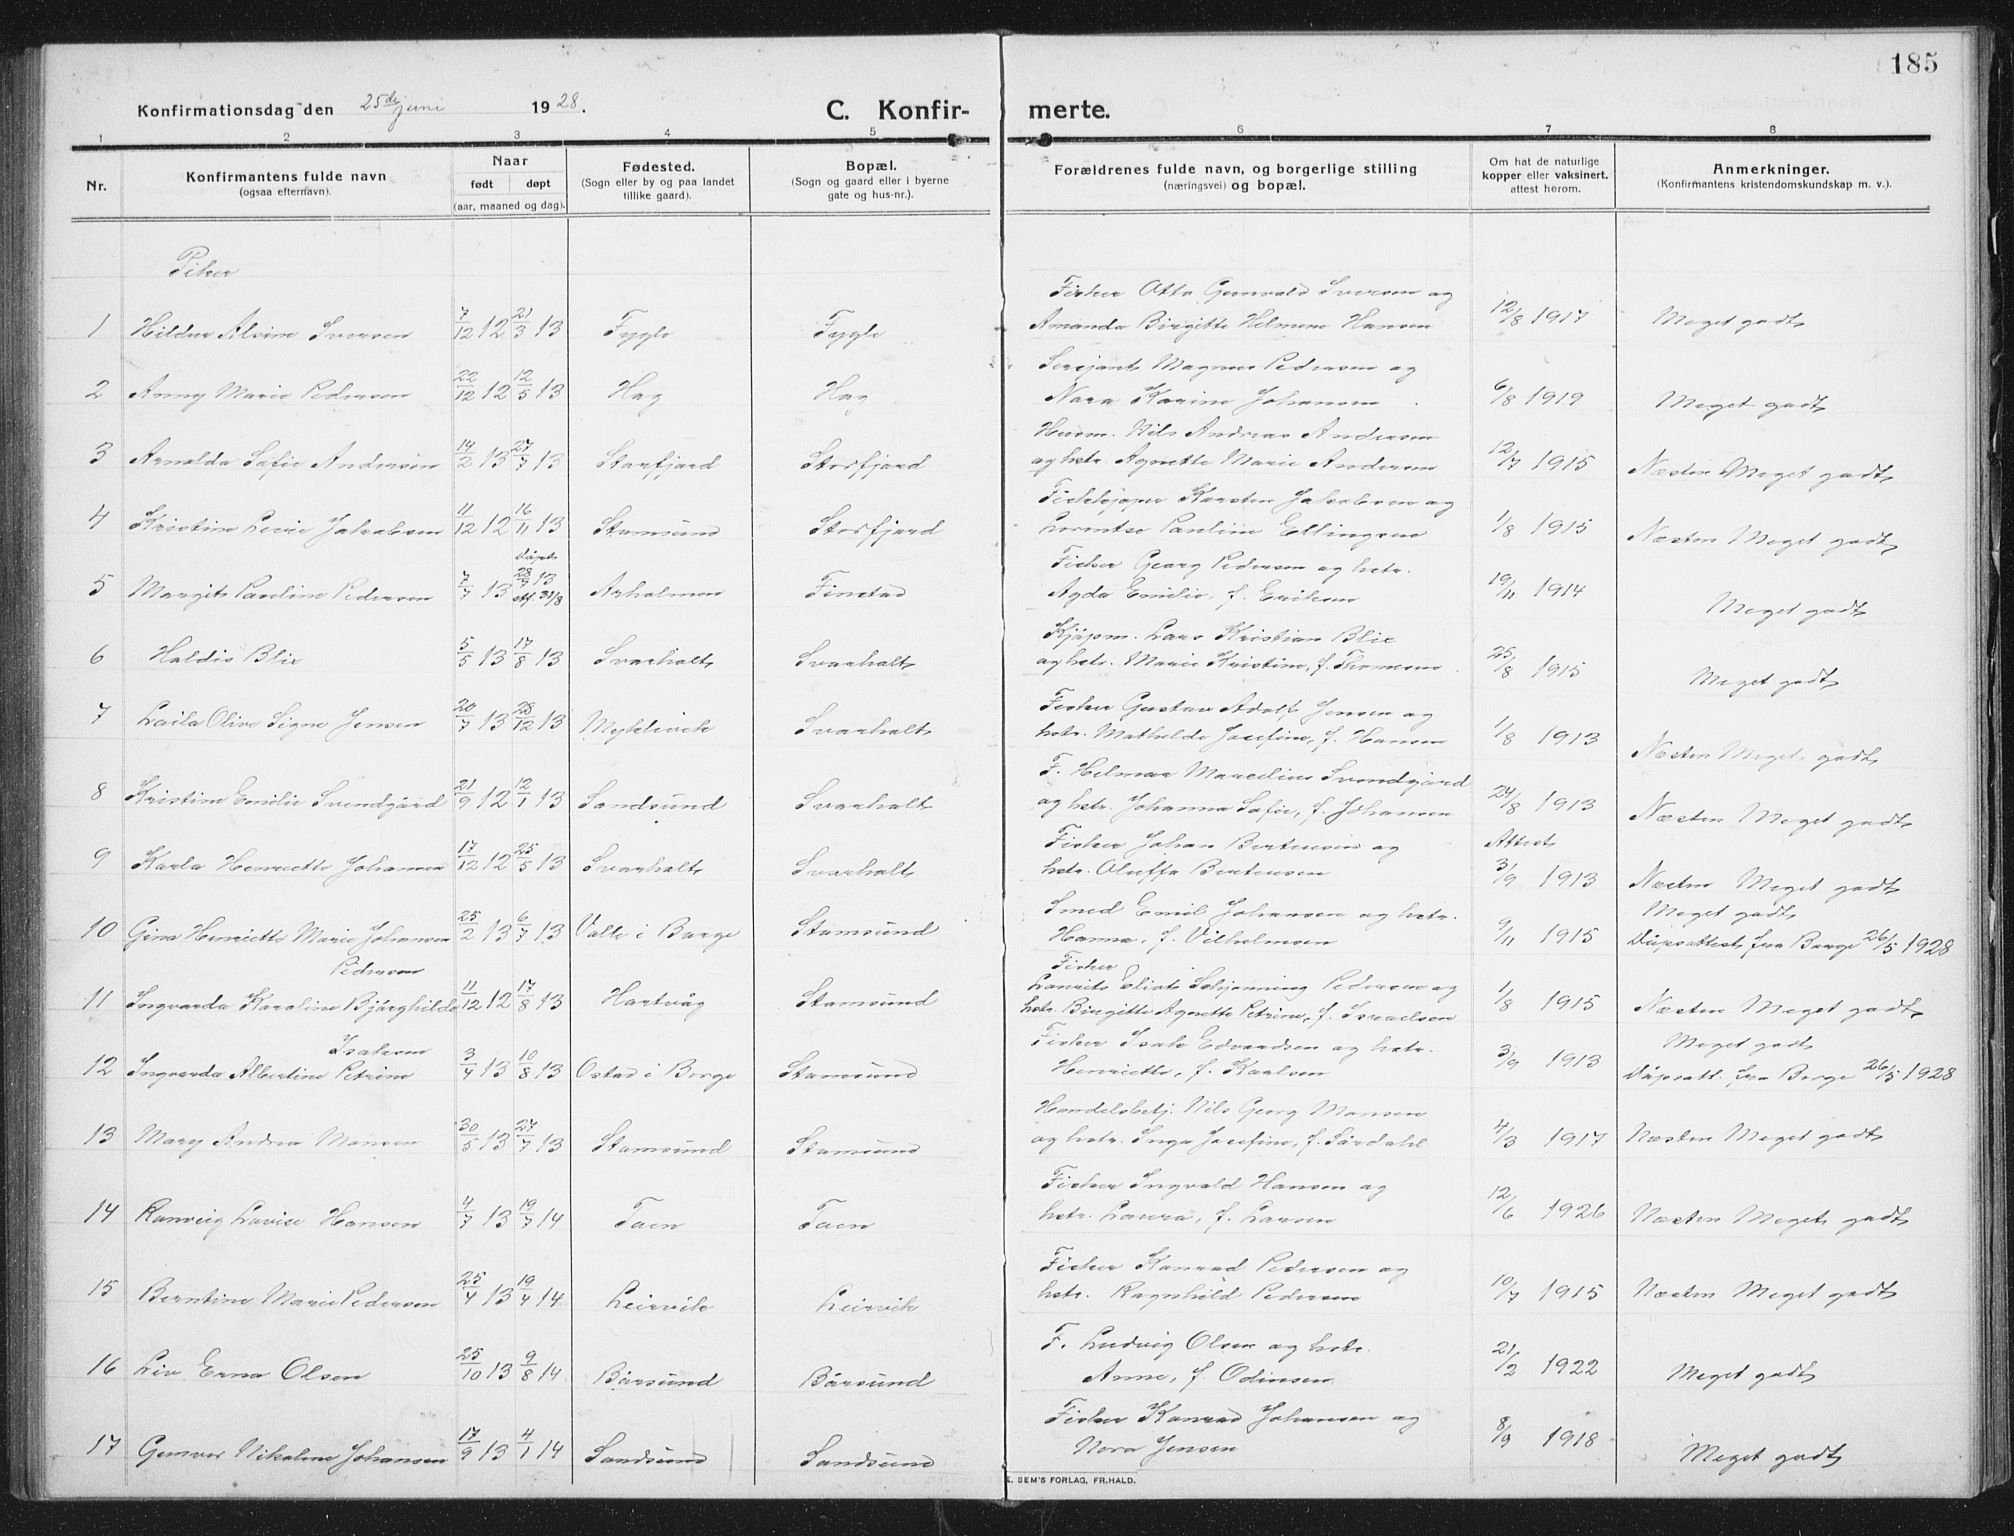 185
Konfirmationsdag den 25de juni 1928.
C. Konfir-
merte.
1 2 3 4 5 6 7 8
Nr.
Konfirmantens fulde navn
(ogsaa efternavn).
Naar
født døpt
(aar, maaned og dag).
Fødested.
(Sogn eller by og paa landet
tillike gaard).
Bopæl.
(Sogn og gaard eller i byerne
gate og hus-nr.).
Forældrenes fulde navn, og borgerlige stilling
(næringsvei) og bopæl.
Om hat de naturlige
kopper eller vaksinert,
attest herom.
Anmerkninger.
(Konfirmantens kristendomskundskap m. v.).
Piker
Fisker Otto Gunvald Iversen og
1 Hildur Alvine Iversen 7/12 12 21/3 13 Fygle Fygle Amanda Birgitte Helmine Hansen 12/8 1917 Meget godt
Sersjant Magnus Pedersen og
2 Anny Marie Pedersen 22/12 12 12/5 13 Hag Hag Nora Karine Johansen 6/8 1919 Meget godt
Husm. Nils Andreas Andersen
3 Arnolda Sofie Andersen 14/2 13 27/7 13 Storfjord Storfjord og hstr. Agnette Marie Andersen 12/7 1915 Næsten Meget godt
Fiskkjøper Karsten Jakobsen og
4 Kristine Jakobsen 11/12 12 16/11 13 Stamsund Storfjord Lorentse Pauline Ellingsen 1/8 1915 Næsten Meget godt
Døpt
Fisker Georg Pedersen og hstr.
5 Margit Pauline Pedersen 7/7 13 28/7 13 st. 31/8 Arholmen Finstad Agda Emilie, f. Eriksen 19/11 1914 Meget godt
Kjøpm. Lars Kristian Blix
6 Haldis Blix 5/5 13 17/8 13 Svarholt Svarholt og hstr. Marie Kristine, f. Thomesen 25/8 1915 Meget godt
Fisker Gustav Adolf Jensen og
7 Laila Olive Signe Jensen 20/7 13 28/12 13 Myklevik Svarholt hstr. Mathilde Josefine, f. Hansen 1/8 1913 Næsten Meget godt
F. Helmar Marcelius Svendgård
8 Kristine Emilie Svendgård 21/9 12 12/1 13 Sandsund Svarholt og hstr. Johanna Sofie, f. Johansen 24/8 1913 Næsten Meget godt
Fisker Johan Bertensen og Attest
9 Karla Henriette Johansen 17/12 12 25/5 13 Svarholt Svarholt hstr. Oluffa Bertensen 3/9 1913 Næsten Meget godt
Smed Emil Johansen og hstr. Meget godt
10 Gina Henriette Marie Johansen 25/2 13 6/7 13 Valle i Borge Stamsund Hanna, f. Vilhelmsen 9/11 1915 Dåpsattest fra Borge 26/5 1928
Pedersen Fisker
Laurits Eliot Schjønning Pedersen og
11 Ingvarda Karoline Bjørghilde 11/12 12 17/8 13 Hartvåg Stamsund hstr. Birgitte Agnette Petrine, f. Israelsen 1/8 1915 Næsten Meget godt
Isaksen Fisker Isak Edvardsen og hstr. Meget godt
12 Ingvarda Albertine Petrine 3/4 13 10/8 13 Ostad i Borge Stamsund Henriette, f. Karlsen 3/9 1913 Dåpsatt. fra Borge 26/5 1928
Handelsbetj. Nils Georg Monsen
13 Mary Andrea Monsen 30/5 13 27/7 13 Stamsund Stamsund og hstr. Inga Josefine, f. Sørdahl 4/3 1917 Næsten Meget godt
Fisker Ingvald Hansen og
14 Ranveig Lovise Hansen 4/7 13 19/7 14 Taen Taen hstr. Laura, f. Larsen 12/6 1926 Næsten Meget godt
Fisker Konrad Pedersen og
15 Berntine Marie Pedersen 25/4 13 19/4 14 Leirvik Leirvik hstr. Ragnhild Pedersen 10/7 1915 Næsten Meget godt
F. Ludvig Olsen og hstr.
16 Liv Erna Olsen 25/10 13 9/8 14 Børsund Børsund Anne, f. Odinsen 21/2 1922 Meget godt
Fisker Konrad Johansen og
17 Gunvor Nikoline Johansen 17/9 13 4/1 14 Sandsund Sandsund Nora Jensen 8/9 1918 Meget godt
E. SEM'S FORLAG, FR.HALD.